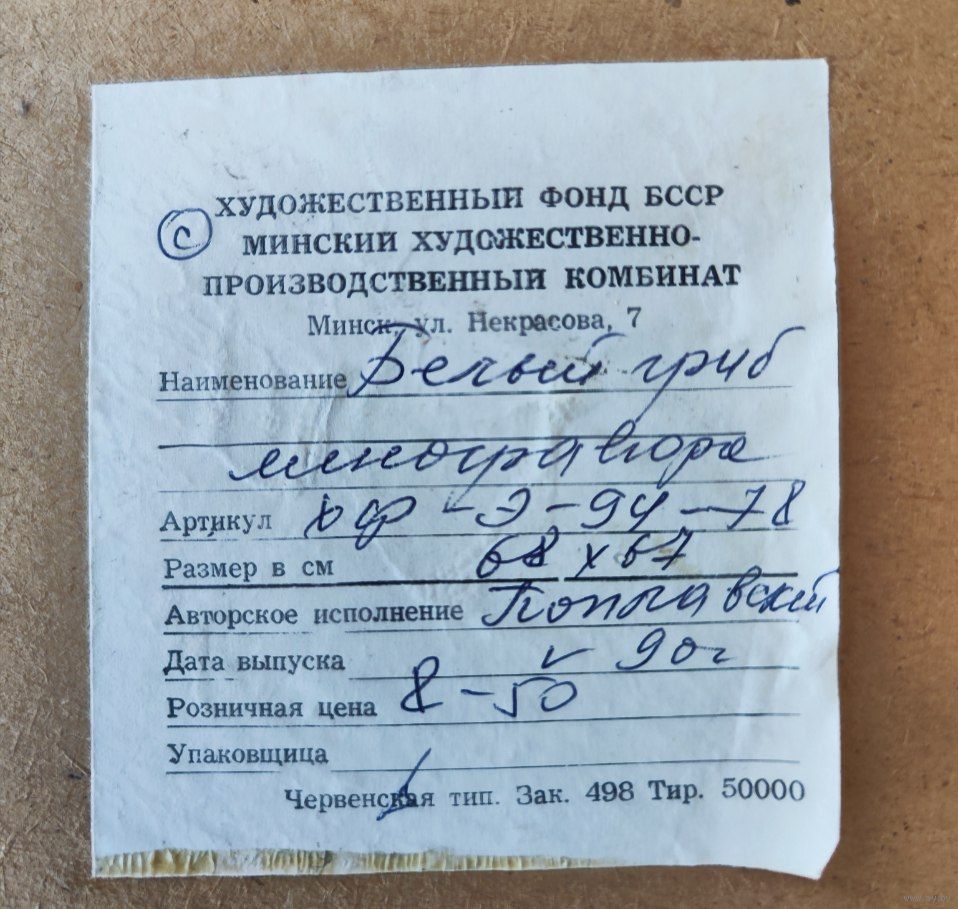 ХУДОЖЕСТВЕННЫЙ ФОНД БССР
© МИНСКИЙ ХУДОЖЕСТВЕННО-
ПРОИЗВОДСТВЕННЫЙ КОМБИНАТ
Минск, ул. Некрасова, 7
Наименование Белый гриб
линогравюра
Артикул ХФ-Э-94-78
Размер в см 68 х 67
Авторское исполнение
Дата выпуска V 90г
Розничная цена 8-50
Упаковщица
Червенская тип. Зак. 498 Тир. 50000